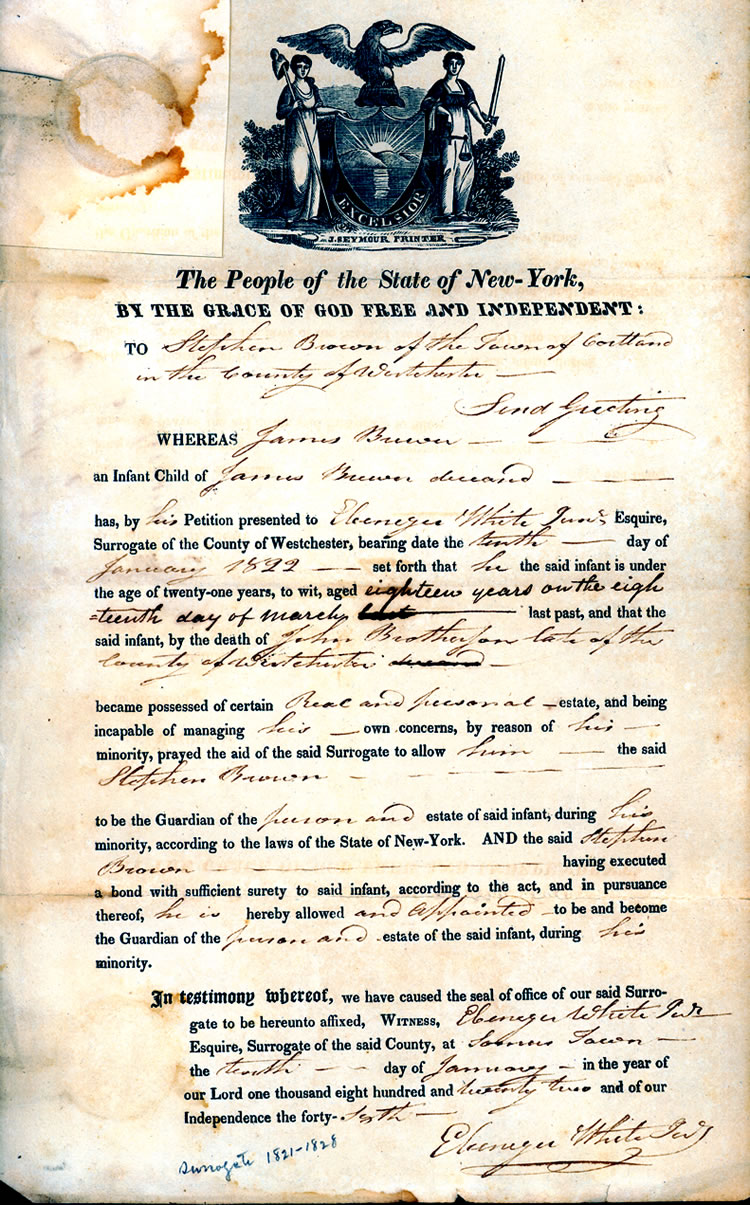 EXCELSIOR
J. SEYMOUR PRINTER
The People of the State of New-York,
BY THE GRACE OF GOD FREE AND INDEPENDENT:
TO Stephen Brown of the Town of Cortland
in the County of Westchester —
Send Greeting
WHEREAS James Brown — — —
an Infant Child of James Brown deceasd — — —
has, by his Petition presented to Ebenezer White Junr. Esquire,
Surrogate of the County of Westchester, bearing date the tenth — day of
January 1822 — — set forth that he the said infant is under
the age of twenty-one years, to wit, aged eighteen years on the eigh
=teenth day of March — last past, and that the
said infant, by the death of John Brotherson late of the
County of Westchester —
became possessed of certain Real and personal — estate, and being
incapable of managing his — own concerns, by reason of his —
minority, prayed the aid of the said Surrogate to allow him — the said
Stephen Brown — — — —
to be the Guardian of the person and estate of said infant, during his
minority, according to the laws of the State of New-York. AND the said Stephen
Brown — — — having executed
a bond with sufficient surety to said infant, according to the act, and in pursuance
thereof, he is hereby allowed and appointed — to be and become
the Guardian of the person and estate of the said infant, during his
minority.
In testimony whereof, we have caused the seal of office of our said Surro-
gate to be hereunto affixed, WITNESS, Ebenezer White Junr
Esquire, Surrogate of the said County, at Somers Town —
the tenth — — day of January — in the year of
our Lord one thousand eight hundred and twenty two and of our
Independence the forty-Sixth —
Ebenezer White Junr
Surrogate 1821-1828